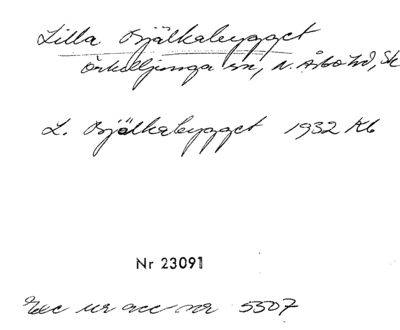 Lilla Bjälkabygget
Örkelljunga sn, N. Åsbo hd, Sk
L. Bjälkabygget 1932 Kb
Nr 23091
Exc ur acc nr 5507